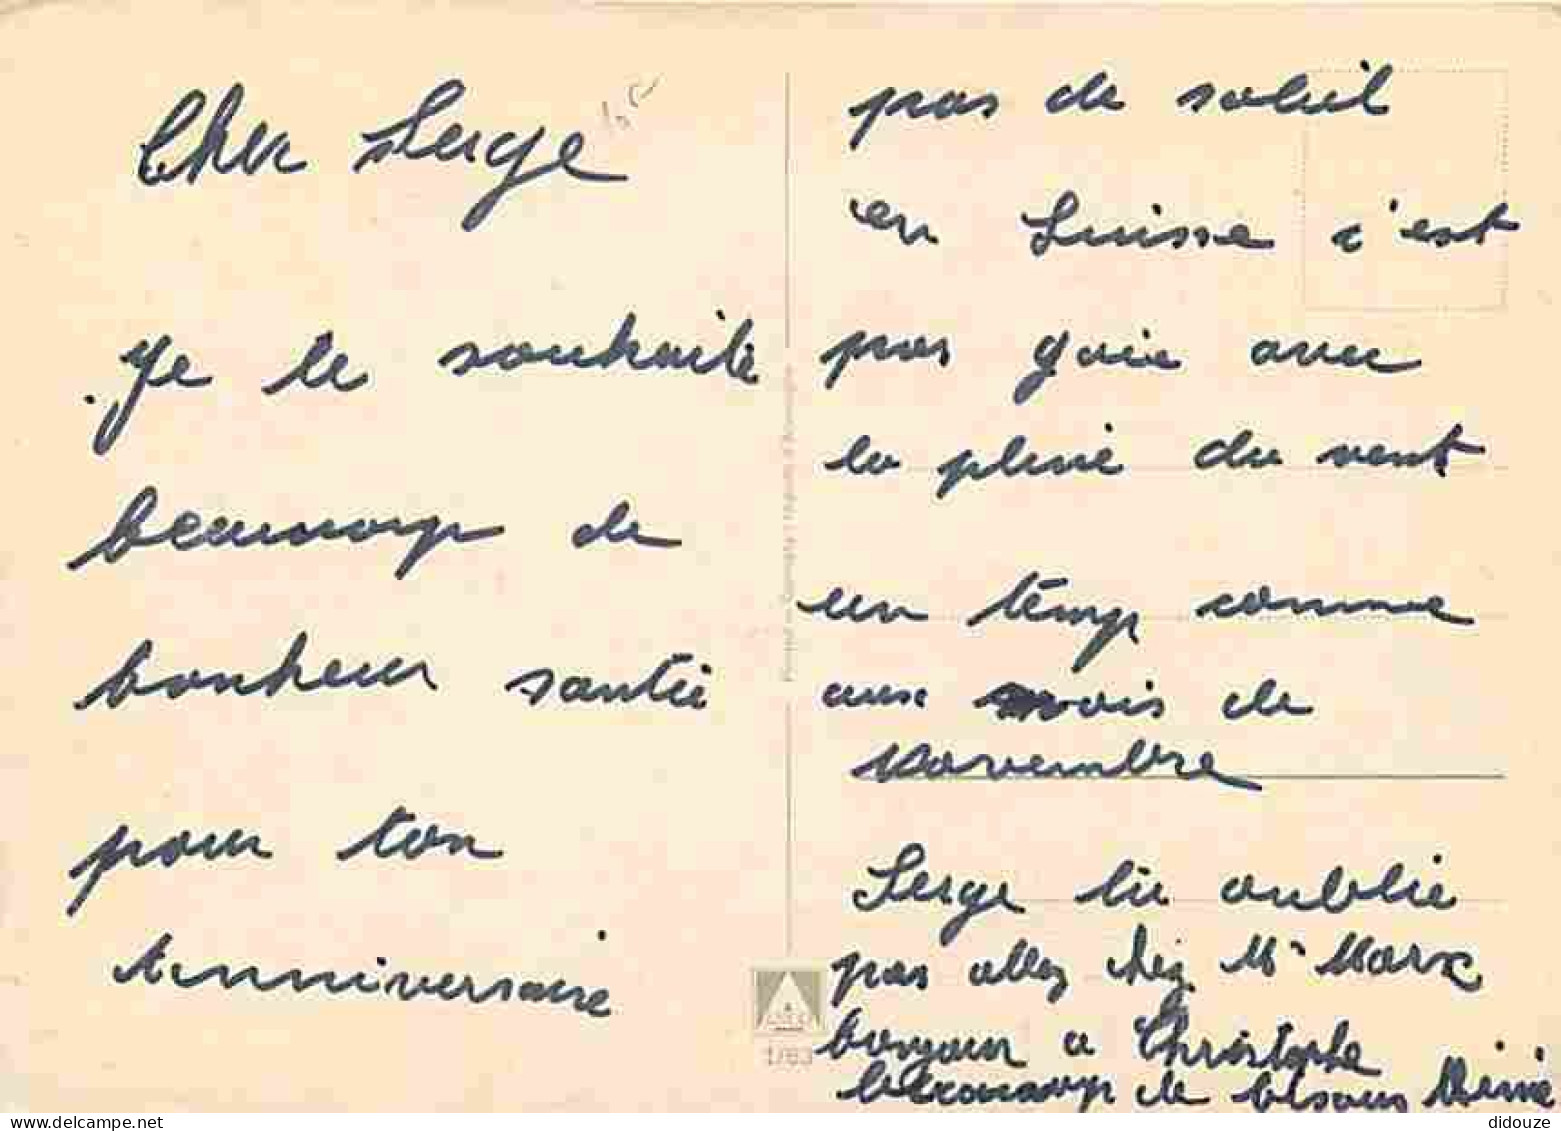 Cher Serge
Je te souhaite
beaucoup de
bonheur santé
pour ton
Anniversaire
pas de soleil
en Suisse c'est
pas gaie avec
la pluie du vent
un temp comme
aux mois de
Novembre
Serge tu oublie
pas allez chez Mr Marx
bonjour a Christophe
beaucoup de bisous Mémé
1/63
delcampe.net
didouze